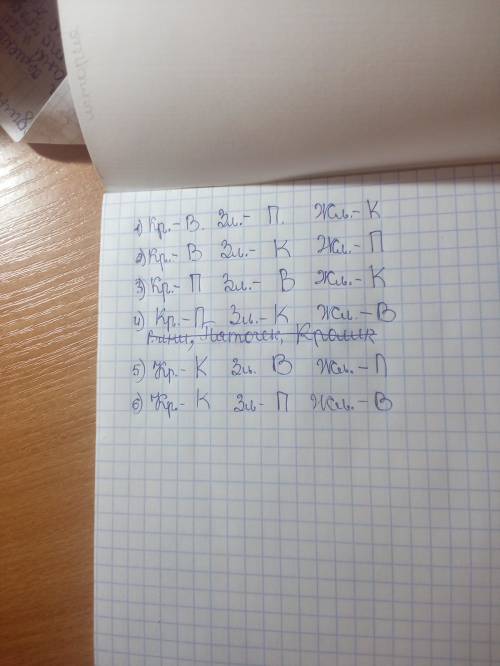 1) Кр.- В. Зл.- П. Жл.- К
2) Кр.- В Зл.- К Жл.- П
3) Кр.- П Зл.- В Жл.- К
4) Кр.- П Зл.- К Жл.- В
Винни, Пяточок, Кролик
5) Кр.- К Зл. В Жл.- П
6) Кр.- К Зл- П Жл.- В